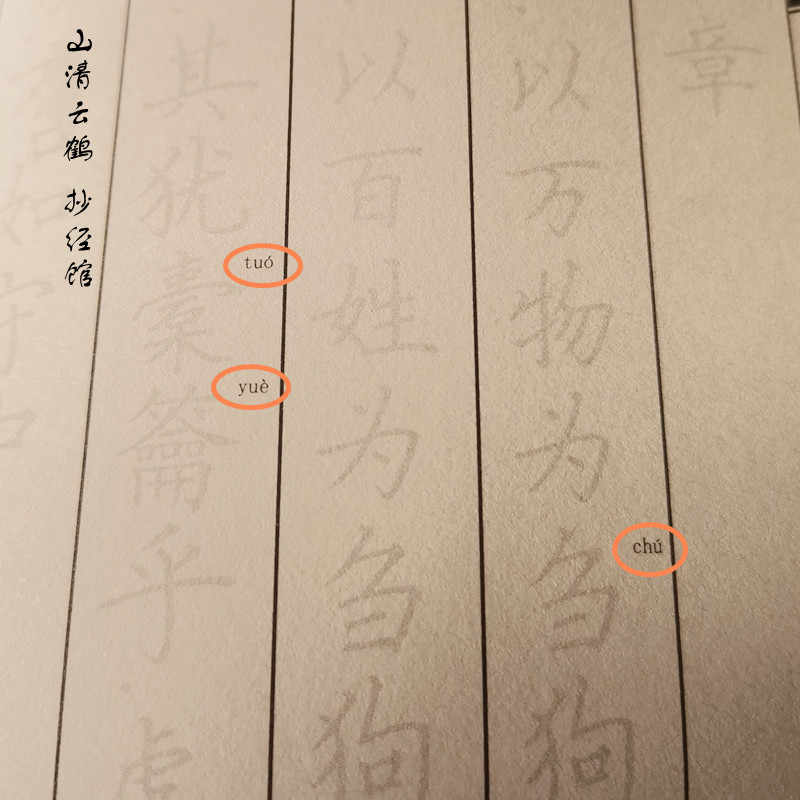 章
以万物为刍狗
chú
以百姓为刍狗
其犹橐籥乎虚
tuó
yuè
如守
山清云鹤 抄经馆